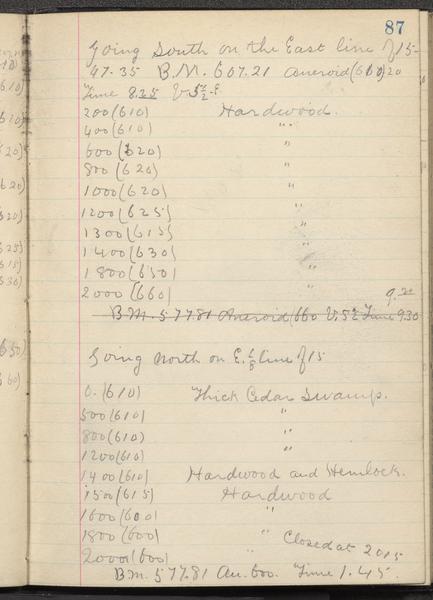 87
Going South on the East line of 15-
47-35 B.M. 607.21 Aneroid (610) 20
Time 8.25
200 (610) Hardwood.
400 (610) "
600 (620) "
800 (620) "
1000 (620) "
1200 (625) "
1300 (615) "
1400 (630) "
1800 (650) "
2000 (660) " 9.20
B.M. 577.81 Aneroid (660 V. 5½ Time 9.30
Going North on E. line of 15
0. (610) Thick Cedar Swamp.
500 (610) "
800 (610) "
1200 (610)
1400 (610) Hardwood and Hemlock.
1500 (615) Hardwood
1600 (600) "
1800 (600) " Closed at 2015
2000 (600) "
B.M. 577.81 An. 600. Time 1.45.